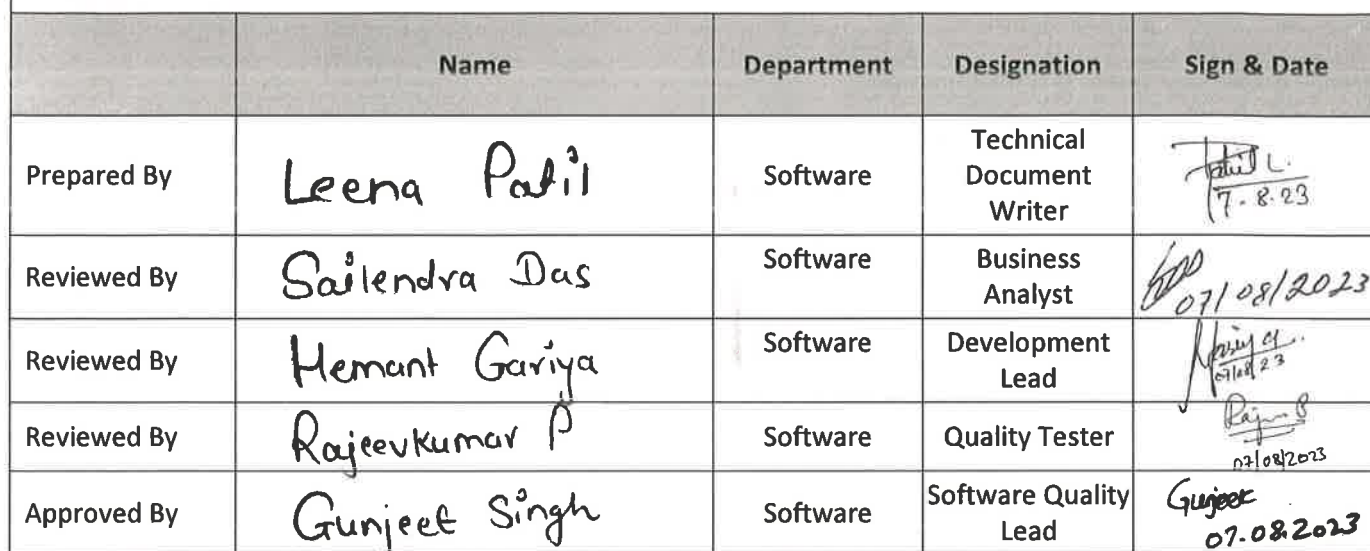 Name Department Designation Sign & Date
Prepared By Leena Patil Software Technical Document Writer Patil L. 7.8.23
Reviewed By Sailendra Das Software Business Analyst 07/08/2023
Reviewed By Hemant Gariya Software Development Lead 07/08/23
Reviewed By Rajeevkumar P Software Quality Tester 07/08/2023
Approved By Gunjeet Singh Software Software Quality Lead Gunjeet 07.08.2023